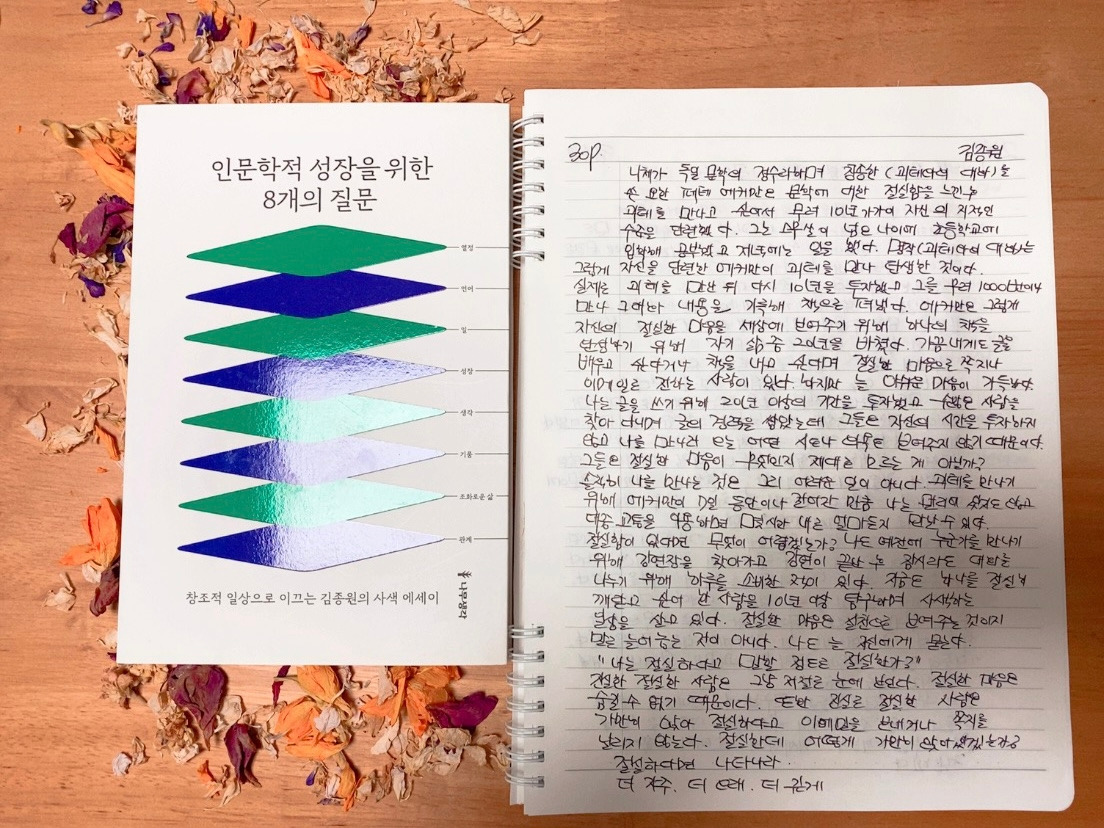 인문학적 성장을 위한
8개의 질문
열정
언어
일
성장
생각
기품
조화로운 삶
관계
창조적 일상으로 이끄는 김종원의 사색 에세이
나무생각
30p. 김종원
니체가 독일 문학의 정수라하며 칭송한 (괴테와의 대화)를
쓴 요한 페터 에커만은 문학에 대한 절실함을 느낀 후
괴테를 만나고 싶어서 무려 10년 가까이 자신의 지적인
수준을 단련했다. 그는 스무살이 넘은 나이에 고등학교에
입학해 공부했고 저녁에는 일을 했다. 명작(괴테와의 대화)는
그렇게 자신을 단련한 에커만이 괴테를 만나 탄생한 것이다.
실제로 괴테를 만난 뒤 다시 10년을 투자했고 그를 무려 1000번이나
만나 그때마다 내용을 기록해 책으로 펴냈다. 에커만은 그렇게
자신의 절실한 마음을 세상에 보여주기 위해 하나의 책을
탄생하기 위해 자기 삶 중 20년을 바쳤다. 가끔 내게도 글을
배우고 싶다거나 책을 내고 싶다며 절실한 마음으로 쪽지나
이메일로 전하는 사람이 있다. 하지만 늘 아쉬운 마음이 가득하다.
나는 글을 쓰기 위해 20년 이상의 기간을 투자했고 수많은 사람을
찾아 다니며 글의 경력을 쌓았는데 그들은 자신의 시간을 투자하지
않고 나를 만나러 오는 어떤 시도나 노력도 보여주지 않기 때문이다.
그들은 절실한 마음이 무엇인지 제대로 모르는 게 아닐까?
솔직히 나를 만나는 것은 그리 어려운 일이 아니다. 괴테를 만나기
위해 에커만이 7일 동안이나 걸어간 만큼 나는 멀리에 있지도 않고
대중 교통을 이용하면 몇 시간 내로 얼마든지 만날 수 있다.
절실함이 있다면 무엇이 어렵겠는가? 나도 예전에 누군가를 만나기
위해 강연장을 찾아가고 강연이 끝난 후 잠시라도 대화를
나누기 위해 하루를 소비한 적이 있다. 지금은 하나를 절실히
깨닫고 싶어 한 사람을 10년 이상 탐구하며 사색하는
일상을 살고 있다. 절실한 마음은 실천으로 보여주는 것이지
말로 늘어놓는 것이 아니다. 나도 늘 자신에게 묻는다.
"나는 절실하다고 말할 정도로 절실한가?"
진실한 절실한 사람은 그냥 저절로 눈에 보인다. 절실한 마음은
숨길 수 없기 때문이다. 또한 진실로 절실한 사람은
가만히 앉아 절실하다고 이메일을 보내거나 쪽지를
날리지 않는다. 절실한데 어떻게 가만히 앉아 있겠는가?
절실하다면 나타나라.
더 자주. 더 오래. 더 깊게